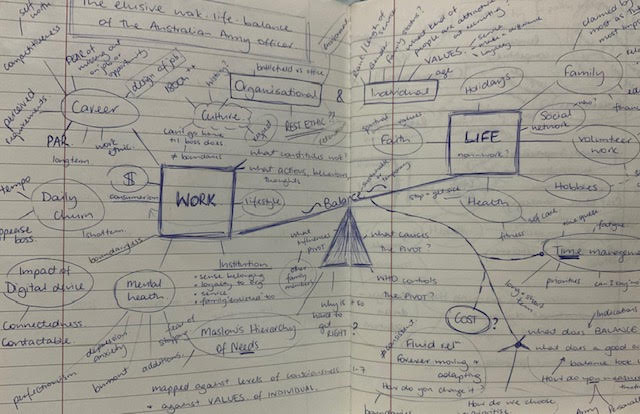 The elusive work-life-balance
of the Australian Army officer
competitiveness
FEAR of
missing out
on job or
opportunity
design of
Career
perceived
requirements
PAR
longterm
work
ethic
can't go home
til boss does
≠ boundaries
Culture
battlefield vs office
Organisational
&
Individual
REST ETHIC ??
VALUES
age
people are attracted
family
service
Holidays
Family
claimed by
most as
most imp
Social
network
who?
Volunteer
work
Hobbies
spiritual
values
Faith
LIFE
nonwork?
Health
self care
fitness
what constitutes work?
what actions, behaviours,
thoughts
WORK
lifestyle
$
consumerism
tempo
Daily
Churn
boss
short term
boundaryless
~ Balance ~
what
influences
PIVOT
what causes
the PIVOT?
WHO controls
the PIVOT?
Institution
• sense belonging
• loyalty to org
• service
other
family
members
Impact of
Digital device
Connectedness
Contactable
Mental
health
perfectionism
depression
anxiety
burnout
additions
fear of
stopping
Maslow's Hierarchy
of Needs
Why is
hard to
get
RIGHT?
COST?
Time manage
fatigue
priorities
long + short
term
Indications
what does BALANCE
what does a good
balance look
How do you measure
Fluid rel
Forever moving +
adapting
How do you change it?
How do we choose
mapped against levels of consciousness 1-7
• against VALUES of INDIVIDUAL
Army
Personal